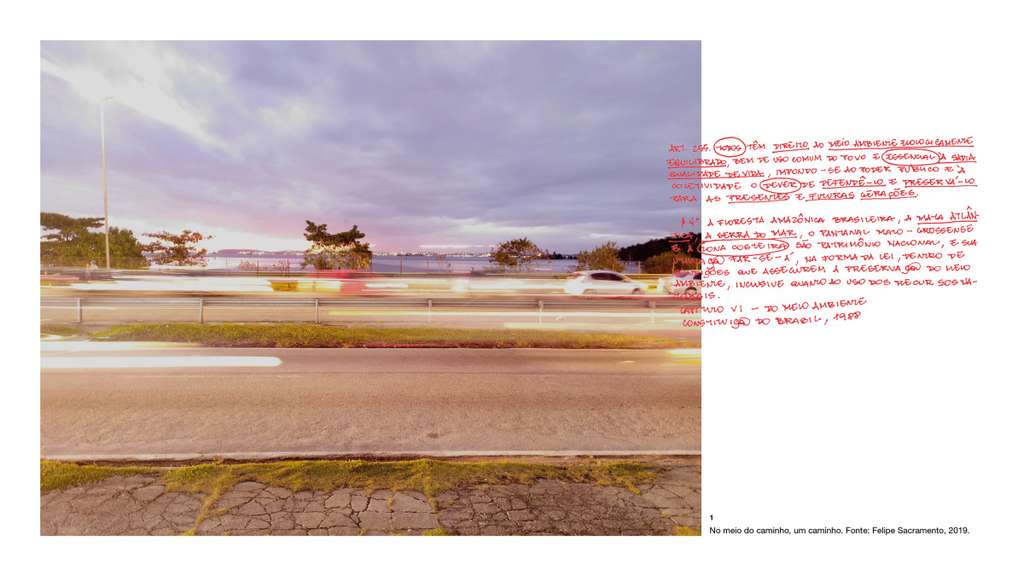 ART. 255. TODOS TÊM DIREITO AO MEIO AMBIENTE ECOLOGICAMENTE
EQUILIBRADO, BEM DE USO COMUM DO POVO E ESSENCIAL À SADIA
QUALIDADE DE VIDA, IMPONDO-SE AO PODER PÚBLICO E À
COLETIVIDADE O DEVER DE DEFENDÊ-LO E PRESERVÁ-LO
PARA AS PRESENTES E FUTURAS GERAÇÕES.
A FLORESTA AMAZÔNICA BRASILEIRA, A MATA ATLÂN-
A SERRA DO MAR, O PANTANAL MATO-GROSSENSE
E A ZONA COSTEIRA SÃO PATRIMÔNIO NACIONAL, E SUA
FAR-SE-Á, NA FORMA DA LEI, DENTRO DE
QUE ASSEGUREM A PRESERVAÇÃO DO MEIO
AMBIENTE, INCLUSIVE QUANTO AO USO DOS
CAPÍTULO VI - DO MEIO AMBIENTE
CONSTITUIÇÃO DO BRASIL, 1988
1
No meio do caminho, um caminho. Fonte: Felipe Sacramento, 2019.